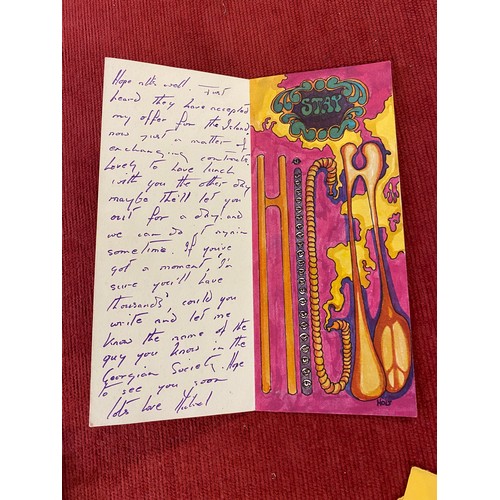 Hope alls well. Just
heard they have accepted
my offer for the Island,
now just a matter of
exchanging contracts
Lovely to have lunch
with you the other day
maybe they'll let you
out for a day and
we can do it again
sometime. If you've
got a moment, I'm
sure you'll have
thousands, could you
write and let me
know the name of the
guy you know in the
Georgian Society. Hope
to see you soon
Lots Love Michael
STAY
HIGH
HOLE